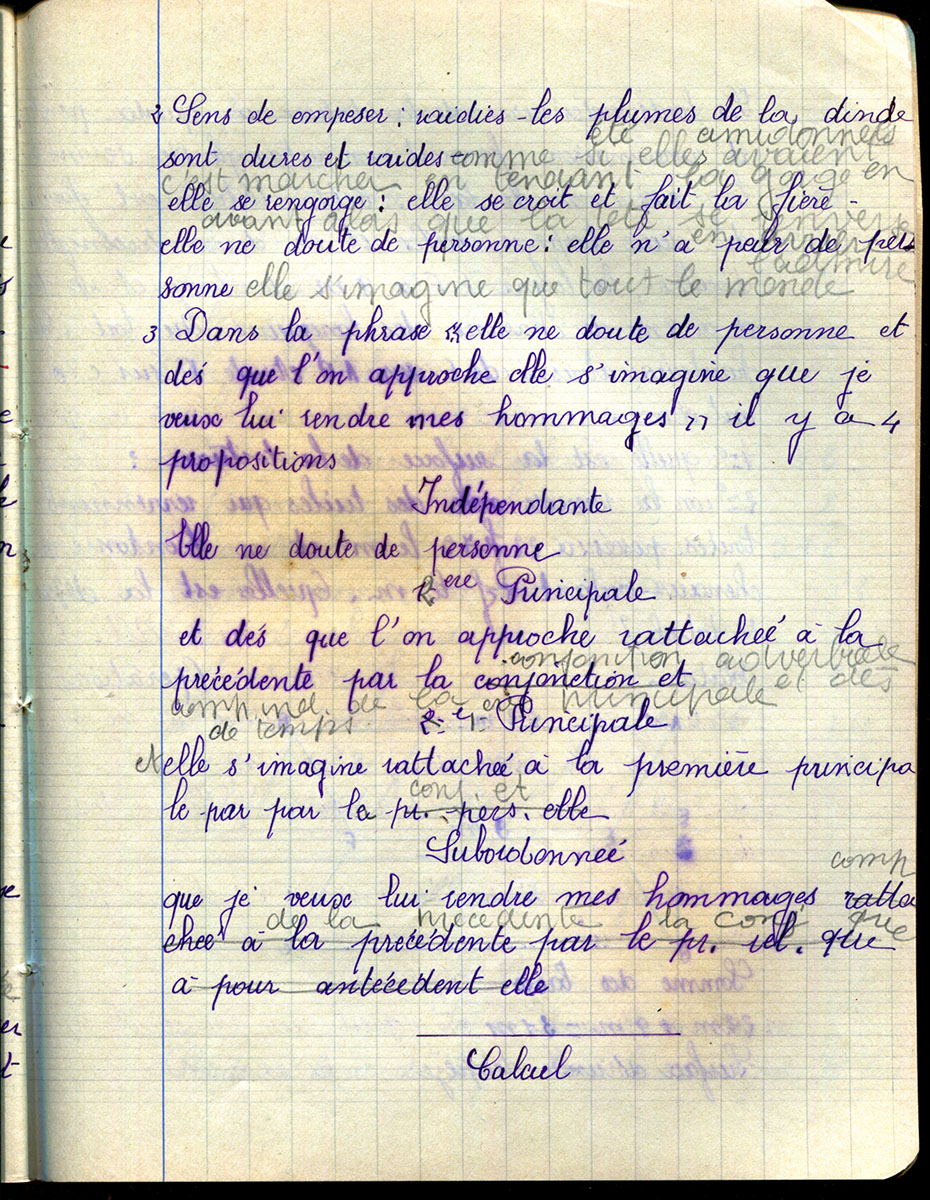 2 Sens de empeser : raidies - les plumes de la dinde
été amidonnées
sont dures et raides comme si elles avaient
c'est marcher en tendant la gorge en
elle se rengorge : elle se croit et fait la fière -
avant alors que la tête se renverse
elle ne doute de personne : elle n'a peur de per
en arrière
l'admire
sonne elle s'imagine que tout le monde
3 Dans la phrase « elle ne doute de personne et
dés que l'on approche elle s'imagine que je
veux lui rendre mes hommages » il y a 4
propositions
Indépendante
Elle ne doute de personne
ere Principale
et dés que l'on approche rattacheé à la
conjonction adverbiale
précédente par la conjonction et
comp ind. de la principale et dés
de temps
Principale
et elle s'imagine rattacheé à la première principa
conj. et
le par par le pr. pers. elle
Subordonneé
comp
que je veux lui rendre mes hommages ratta
de la précédente la conj que
cheé à la précédente par le pr. rel. que
à pour antécédent elle
Calcul